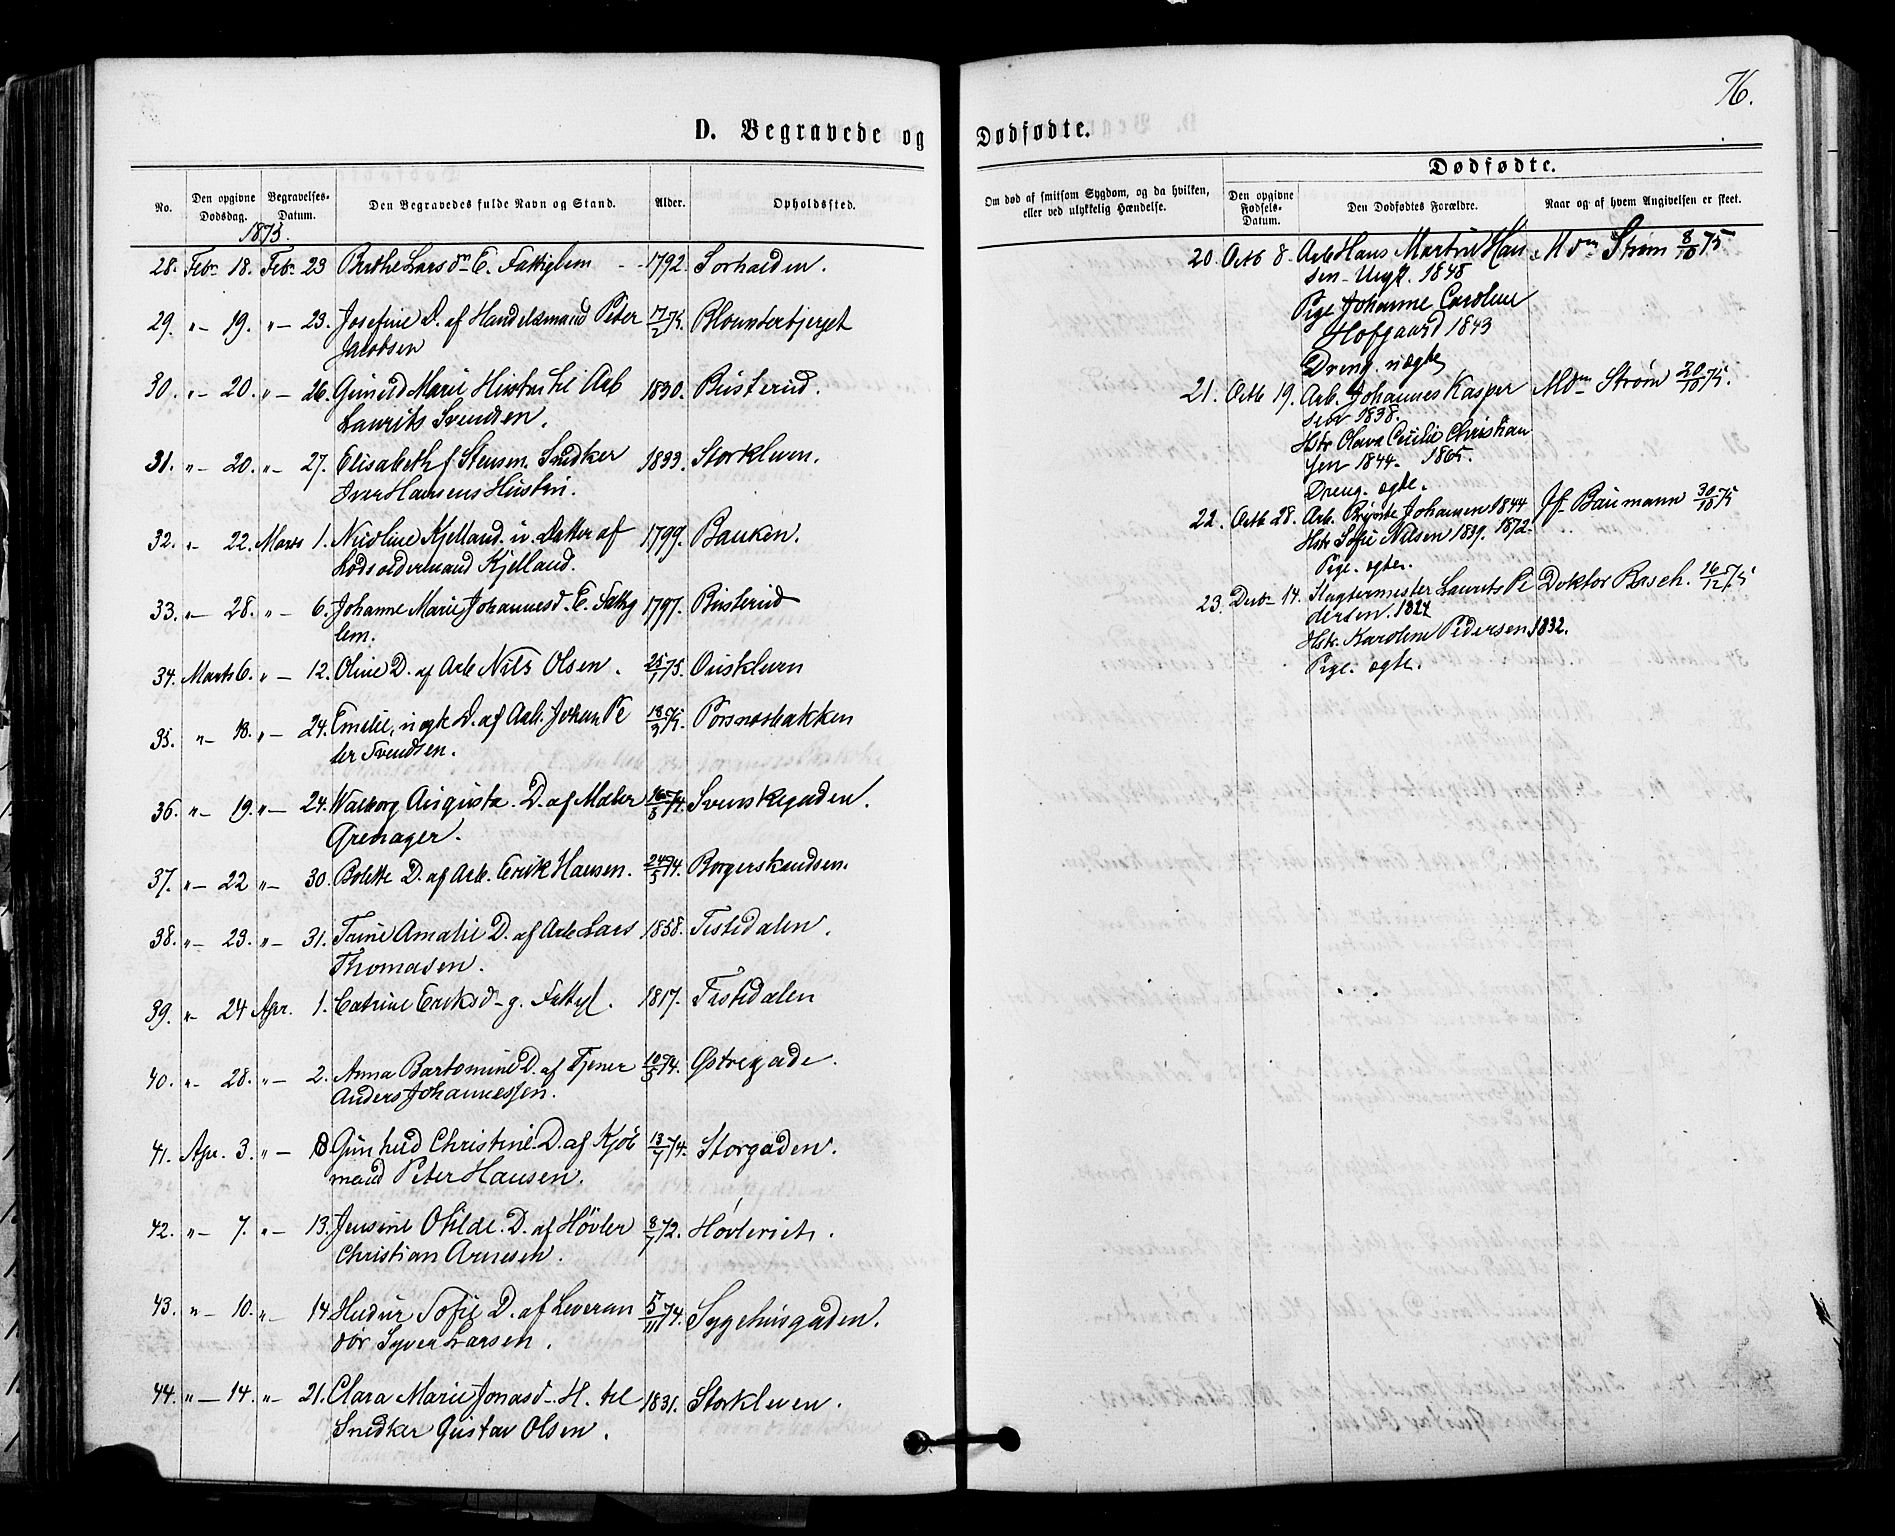 76.
D. Begravede og Dødfødte.
Dødfødte.
No.
Den opgivne Dødsdag.
Begravelses-Datum.
Den Begravedes fulde Navn og Stand.
Alder.
Opholdssted.
Om død af smitsom Sygdom, og da hvilken,
eller ved ulykkelig Hændelse.
Den opgivne Fødsels-Datum.
Den Dødfødtes Forældre.
Naar og af hvem Angivelsen er skeet.
1875.
28. Febr. 18. Febr. 23 Berthe Larsdr E. Fattiglem - 1792. Sorhalden.
29. " - 19. " - 23. Josefine D. af Handelsmand Peter 17/2 75.
Jacobsen
30. " - 20. " - 26. Marie Hustru til Arb 1830. Busterud.
Laurits Svendsen.
31. " - 20. " - 27. Elisabeth f. Stensen. Snedker 1833. Storkleven.
Iver Hansens Hustru.
32. " 22. Marts 1. Nicoline Kjelland. u. Datter af 1799. Banken.
Lodsoldermand Kjelland.
33. " - 28. " - 6. Johanne Marie Johannesd. E. Fattig 1797. Busterud
lem.
34. Marts 6. " - 12. Oline D. af Arb Nils Olsen. 25/1 75.
35. " - 18. " - 24. Emelie, uegte D. af Arb. Johan Pe 18/3 75. Porsnæsbakken
ter Svendsen.
36. " - 19. " - 24. Walborg Augusta. D. af Maler 16/5 74. Svenskegaden.
Grenager.
37. " - 22 " - 30. Bolette D. af Arb. Erik Hansen. 24/5 74. Borgerskandsen.
38. " - 23. " - 31. Trine Amalie D. af Arb Lars 1858. Tistedalen.
Thomasen.
39. " - 24 Apr. 1. Catrine Eriksd - g. Fattigl. 1817. Tistedalen
40. " - 28. " - 2. Anna Bartomine D. af Tjener 10/5 74. Østregade.
Anders Johannessen.
41. Apr. 3. " - Gunhild Christine D. af Kjøb 13/7 74. Storgaden.
mand Peter Hansen.
42. " - 7. " - 13. Jensine Otilde. D. af Høvler 8/7 72. Høvleriet.
Christian Arnesen.
43. " - 10. " - 14. Sofie D. af Leveran 5/11 74. Sygehusgaden.
dør Syver Larsen.
44. " - 14. " - 21. Clara Marie Jonasd - H. til 1831. Storkleven.
Snedker Gustav Olsen.
20. Octb 8. Arb Hans Martin Han Mdm Strøm 8/10 75
sen - Ungk. 1848
Pige Johanne Caroline
Hofgaard 1843
Dreng. uegte
21. Octb 19. Arb. Johannes Kasper Mdm Strøm 20/10 75.
sen 1838.
Hstr Olava Cecilie Christian
sen 1844. 1865.
Dreng. ægte.
22. Octb 28. Arb. Johansen 1844 Jf. Baumann 30/10 75
Hstr Sofie Nilsen 1839. 1872.
Pige. ægte.
23. Decb - 14. Slagtermester Laurits Pe Doktor Rasch. 16/12 75
dersen. 1827
Hstr. Karoline Pedersen 1832.
Pige. ægte.